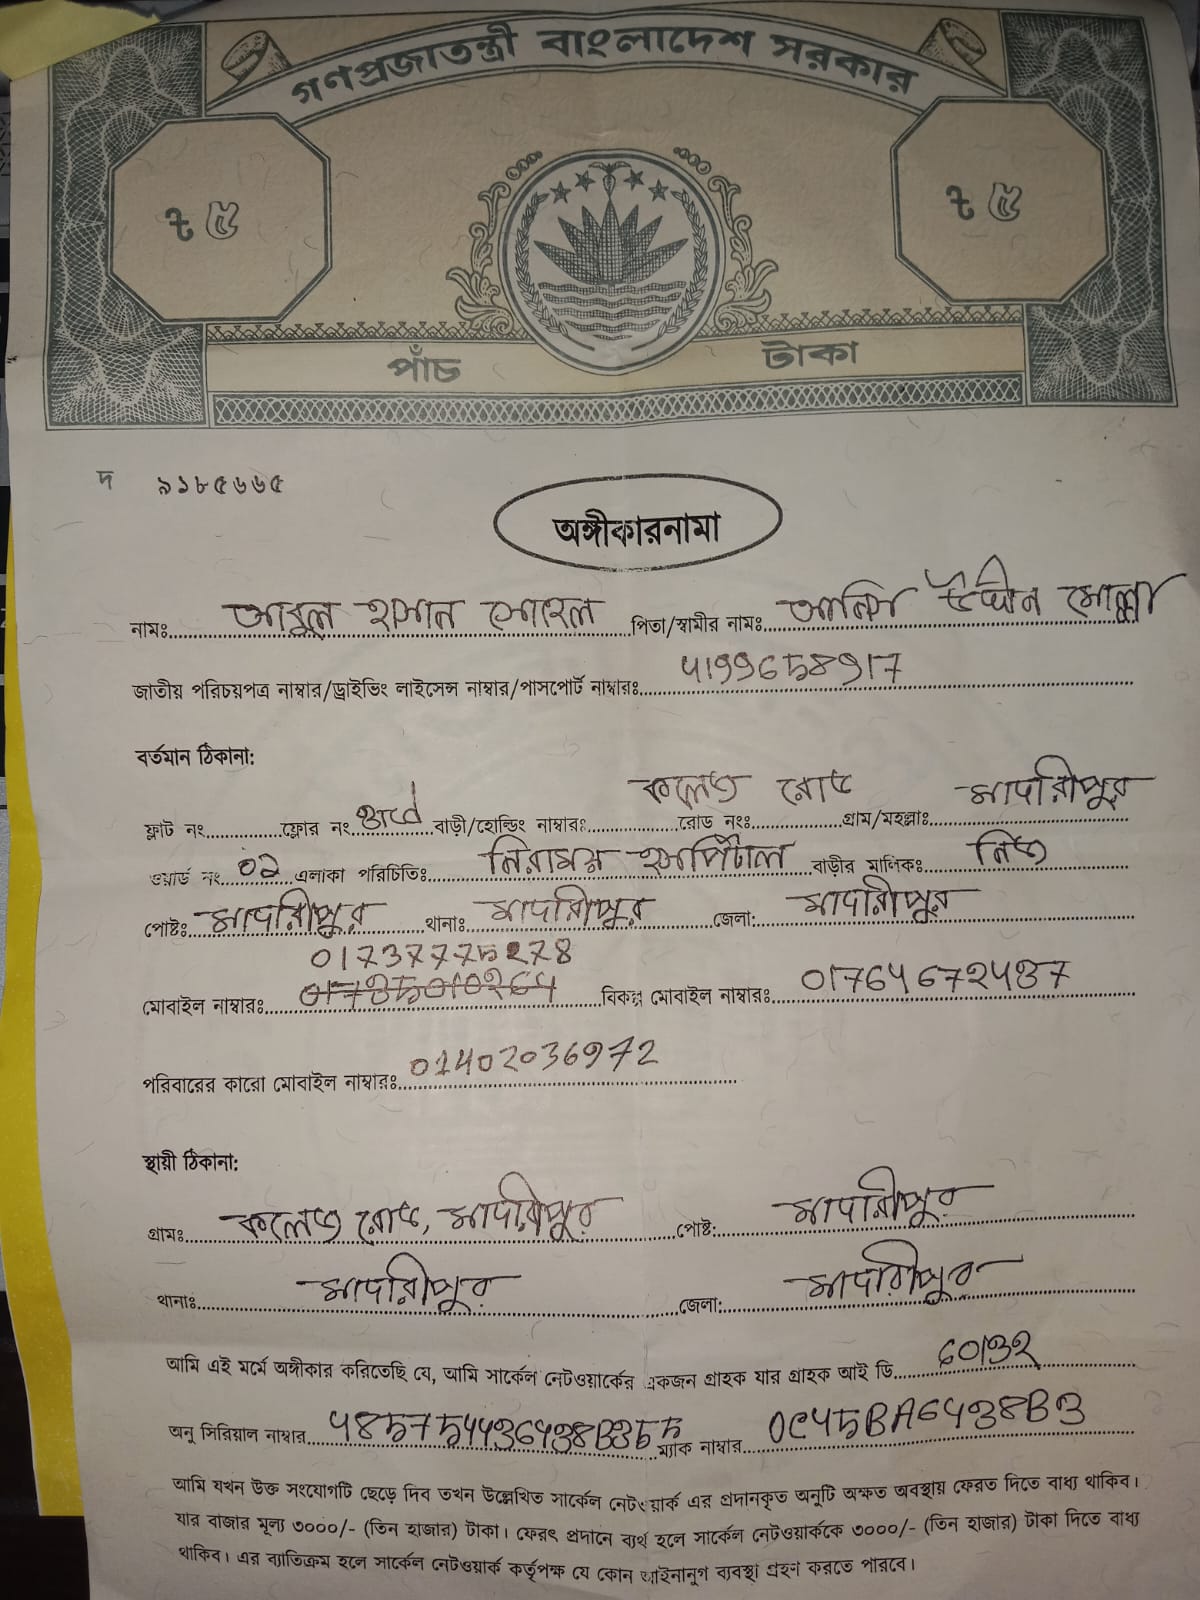 গণপ্রজাতন্ত্রী বাংলাদেশ সরকার
৳ ৫ ৳ ৫
পাঁচ টাকা
দ ৯১৮৫৬৬৫
অঙ্গীকারনামা
নামঃ আবুল হাসান সোহেল পিতা/স্বামীর নামঃ উদ্দীন মোল্লা
জাতীয় পরিচয়পত্র নাম্বার/ড্রাইভিং লাইসেন্স নাম্বার/পাসপোর্ট নাম্বারঃ
বর্তমান ঠিকানা:
ফ্লাট নং ফ্লোর নং 3rd বাড়ী/হোল্ডিং নাম্বারঃ রোড নংঃ কলেজ রোড গ্রাম/মহল্লাঃ মাদারীপুর
ওয়ার্ড নং 02 এলাকা পরিচিতিঃ নিরাময় হসপিটাল বাড়ীর মালিকঃ নিজ
পোষ্টঃ মাদারীপুর থানাঃ মাদারীপুর জেলা: মাদারীপুর
01737775278
মোবাইল নাম্বারঃ বিকল্প মোবাইল নাম্বারঃ 01764672437
পরিবারের কারো মোবাইল নাম্বারঃ 01402036972
স্থায়ী ঠিকানা:
গ্রামঃ কলেজ রোড, মাদারীপুর পোষ্ট: মাদারীপুর
থানাঃ মাদারীপুর জেলা: মাদারীপুর
আমি এই মর্মে অঙ্গীকার করিতেছি যে, আমি সার্কেল নেটওয়ার্কের একজন গ্রাহক যার গ্রাহক আই ডি
অনু সিরিয়াল নাম্বার ম্যাক নাম্বার
আমি যখন উক্ত সংযোগটি ছেড়ে দিব তখন উল্লেখিত সার্কেল নেটওয়ার্ক এর প্রদানকৃত অনুটি অক্ষত অবস্থায় ফেরত দিতে বাধ্য থাকিব।
যার বাজার মূল্য ৩০০০/- (তিন হাজার) টাকা। ফেরৎ প্রদানে ব্যর্থ হলে সার্কেল নেটওয়ার্ককে ৩০০০/- (তিন হাজার) টাকা দিতে বাধ্য
থাকিব। এর ব্যাতিক্রম হলে সার্কেল নেটওয়ার্ক কর্তৃপক্ষ যে কোন আইনানুগ ব্যবস্থা গ্রহণ করতে পারবে।